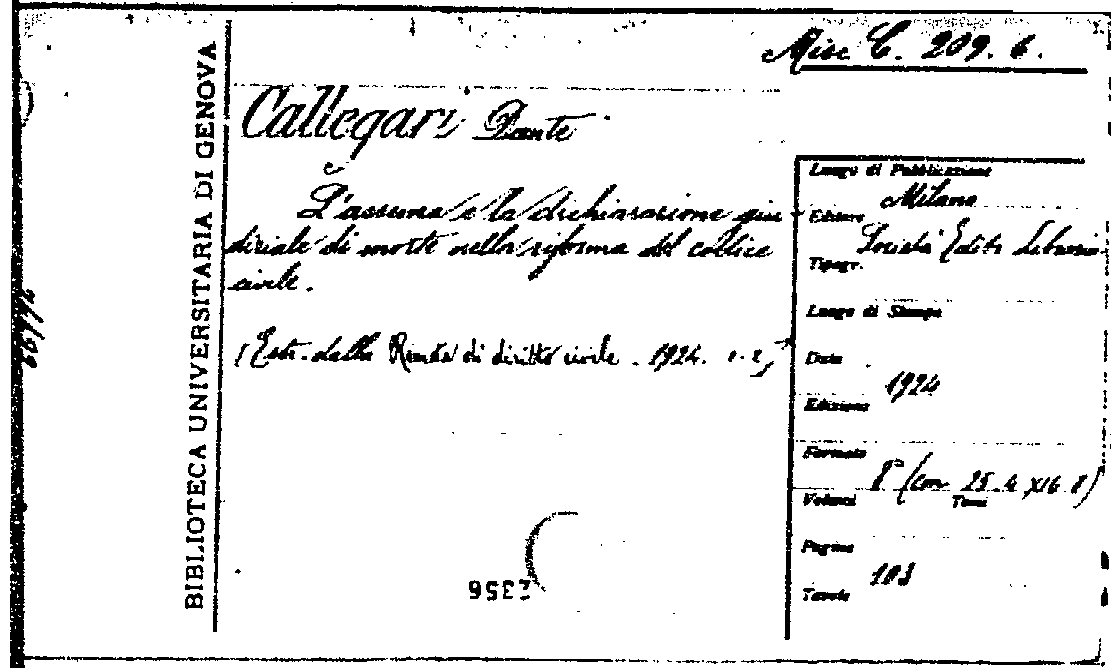 Misc C. 209. 6.
BIBLIOTECA UNIVERSITARIA DI GENOVA
Callegari Dante
L'assenza e la dichiarazione giu-
diziale di morte nella riforma del codice
civile.
(Estr. dalla Rivista di diritto civile. 1924.
Luogo di Pubblicazione
Milano
Editore
Società Editr. Libraria
Tipogr.
Luogo di Stampa
Data
1924
Edizione
Formato
8° (cm 25.4 x 16.8)
Volumi Tomi
Pagine
103
Tavole
2356